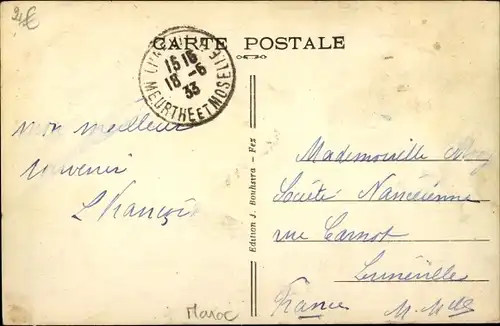 CARTE POSTALE
15 15
18 - 6
33
MEURTHE ET MOSELLE
mon meilleur
souvenir
L François
Edition J. Bouhsira - Fez
Mademoiselle
Société Nancéienne
rue Carnot
Lunéville
France M. Mlle
Maroc